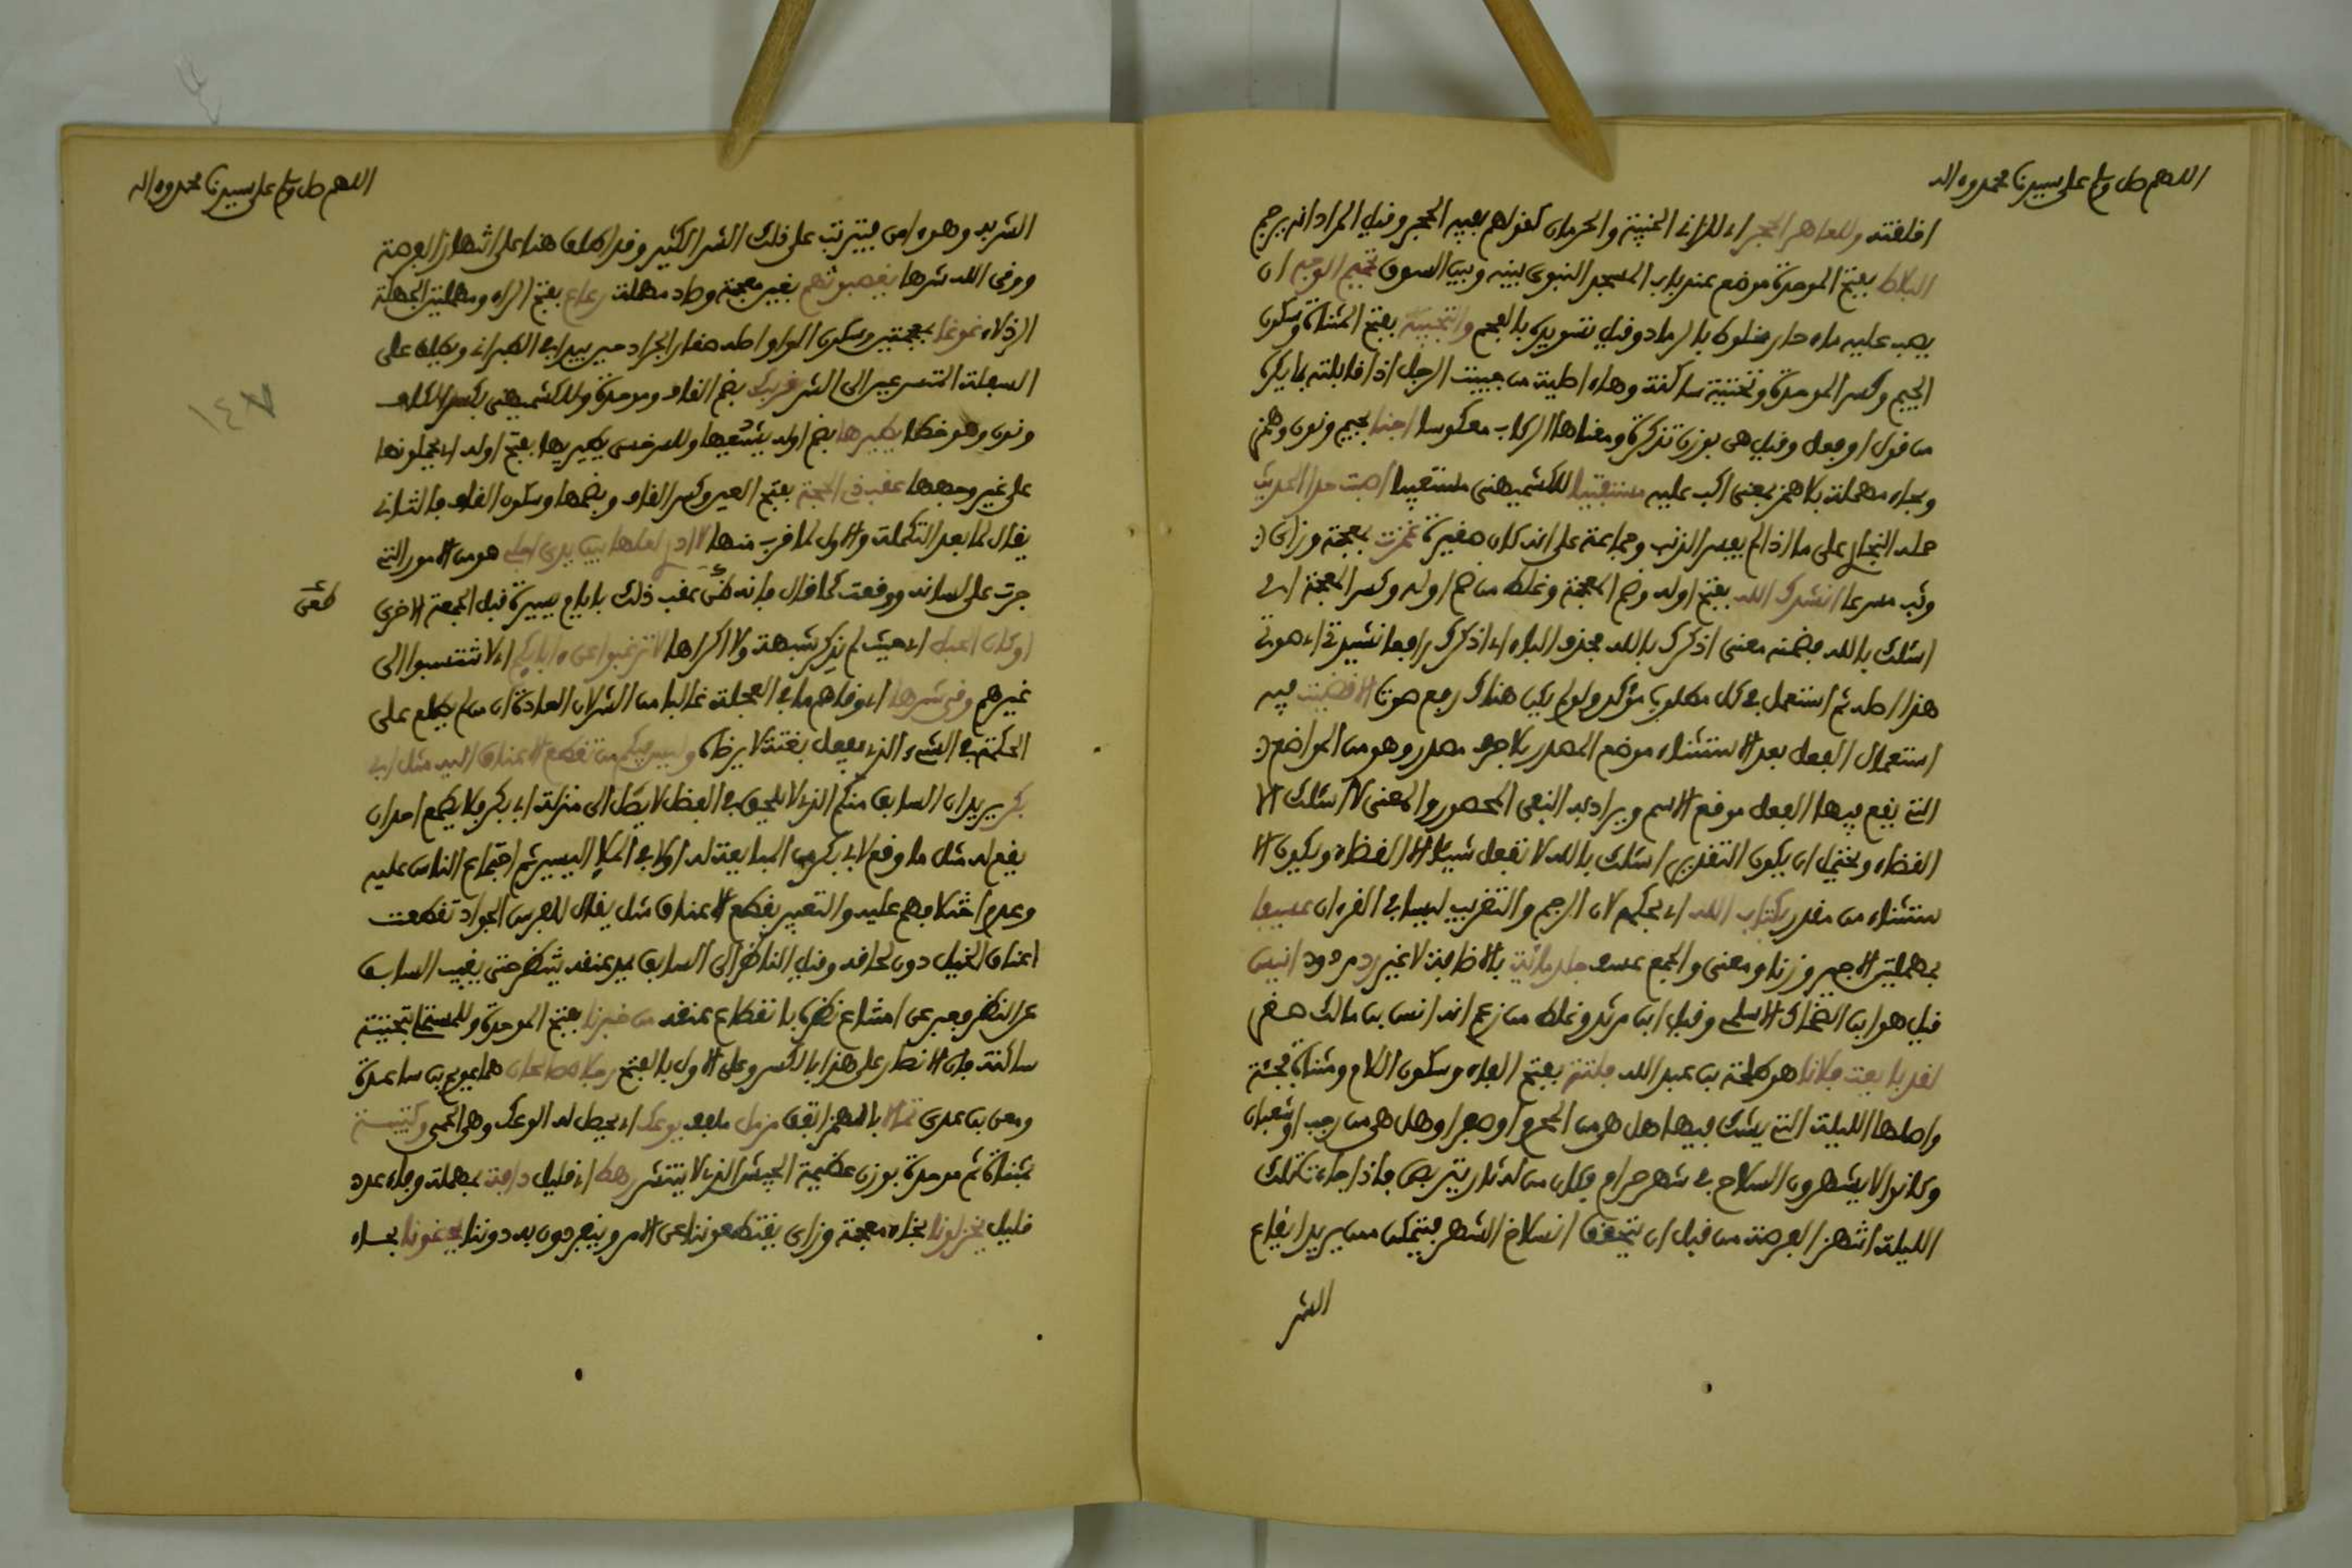 اللهم صل وسلم على سيدنا محمد وءاله
اخلفته وللعاهر الحجر اي للزاني الخيبة والحرمان كقولهم بفيه الحجر وقيل المراد انه يرجم
البلاط بفتح الموحدة موضع عند باب المسجد النبوي بينه وبين السوق تحميم الوجه ان
يصب عليه ماء حار مخلوط بالرماد وقيل تسويده بالفحم والتجبية بفتح المثناة وسكون
الجيم وكسر الموحدة وتحتية ساكنة وهاء اصلية من جبهت الرجل اذا قابلته بما يكره
من قول او فعل وقيل هي بوزن تذكرة ومعناها الاركاب معكوسا اجنا بجيم ونون وهمز
وبحاء مهملة بلا همز بمعنى اكب عليه مستفتيا للكشميهني مستعتبا اصبت حدا الحديث
حمله البخاري على ما اذا لم يفسر الذنب وجماعة على انه كان صغيرة غمزت بمعجمة وزاي
وثب مسرعا انشدك الله بفتح اوله وضم المعجمة وغلط من ضم اوله وكسر المعجمة اي
اسئلك بالله وضمنه معنى اذكرك بالله بحذف الباء اي اذكرك رافعا نشيدتي اي صوتي
هذا اصله ثم استعمل في كل مطلوب مؤكد ولو لم يكن هناك رفع صوت الا قضيت فيه
استعمال الفعل بعد الاستثناء موضع المصدر بلا حرف مصدر وهو من المواضع
التي يقع فيها الفعل موقع الاسم ويراد به النفي المحصور والمعنى لا اسئلك الا
القضاء ويحتمل ان يكون التقدير اسئلك بالله لا تفعل شيئا الا القضاء ويكون الا
ستثناء من مقدر بكتاب الله اي بحكمه لان الرجم والتغريب ليسا في القرءان عسيفا
بمهملتين الاجير وزنا ومعنى والجمع عسفاء جلد مائة بالاضافة لا غير رد مردود انيس
قيل هو ابن الضحاك الاسلمي وقيل ابن مرثد وغلط من زعم انه انس بن مالك صغر
لقد بايعت فلانا هو طلحة بن عبد الله فلتة بفتح الفاء وسكون اللام ومثناة فجئة
واصلها الليلة التي يشك فيها هل هي من المحرم او صفر او هل هي من رجب او شعبان
وكانوا لا يشهرون السلاح في شهر حرام فكان من له ثار يتربص فاذا جاءت تلك
الليلة انتهز الفرصة من قبل ان يتحقق انسلاخ الشهر فيتمكن ممن يريد ايقاع
الشر
اللهم صل وسلم على سيدنا محمد وءاله
الشر به وهو ءامن فيترتب على ذلك الشر الكثير وقد اطلق هنا على انتهاز الفرصة
ووقى الله شرها يغصبونهم بغين معجمة وصاد مهملة رعاع بفتح الراء ومهملتين الجهلة
الرذلاء غوغاء بمعجمتين وسكون الواو اصله صغار الجراد حين يبدا في الطيران ويطلق على
السفلة المتسرعين الى الشر قربك بضم القاف وموحدة وللكشميهني بكسر القاف
ونون وهو خطا يطيرها بضم اوله يشنعها وللسرخسي يطير بها بفتح اوله اي يحملونها
على غير وجهها عقب ذي الحجة بفتح العين وكسر القاف وبضمها وسكون القاف فالثاني
يقال لما بعد التكملة والاول لما قرب منها لا ادري لعلها بين يدي اجلي هو من الامور التي
جرت على لسانه ووقعت كما قال فانه طعن عقب ذلك بايام يسيرة قبل الجمعة الاخرى
طعن
او كان الحبل اي حيث لم تذكر شبهة ولا اكراها لا ترغبوا عن ءابائكم اي لا تنتسبوا الى
غيرهم وقى شرها اي وقاهم ما في العجلة غالبا من الشر لان العادة ان من لم يطلع على
الحكمة في الشيء الذي يفعل بغتة لا يرضاه وليس فيكم من تقطع الاعناق اليه مثل ابي
بكر يريد ان السابق منكم الذي لا يلحق في الفضل لا يصل الى منزلة ابي بكر فلا يطمع احد ان
يقع له مثل ما وقع لابي بكر من المبايعة له اولا في الملا اليسير ثم اجتماع الناس عليه
وعدم اختلافهم عليه والتعبير بقطع الاعناق مثل يقال للفرس الجواد تقطعت
اعناق الخيل دون لحاقه وقيل الناظر الى السابق يمد عنقه ينظر حتى يغيب السابق
عن النظر فعبر عن امتناع نظره بانقطاع عنقه من خبرنا بفتح الموحدة وللمستملي بتحتية
ساكنة فان الانصار على هذا بالكسر وعلى الاول بالفتح رجلان صالحان هما عويم بن ساعدة
ومعن بن عدي تمالا بالهمز اتفق مزمل ملفف يوعك اي يحصل له الوعك وهي الحمى وكتيبة
بمثناة ثم موحدة بوزن عظيمة الجيش الذي لا ينتشر رهط اي قليل دافة بمهملة وفاء عدد
قليل يختزلونا بخاء معجمة وزاي يقتطعوننا عن الامر وينفردون به دوننا يحضنونا بحاء